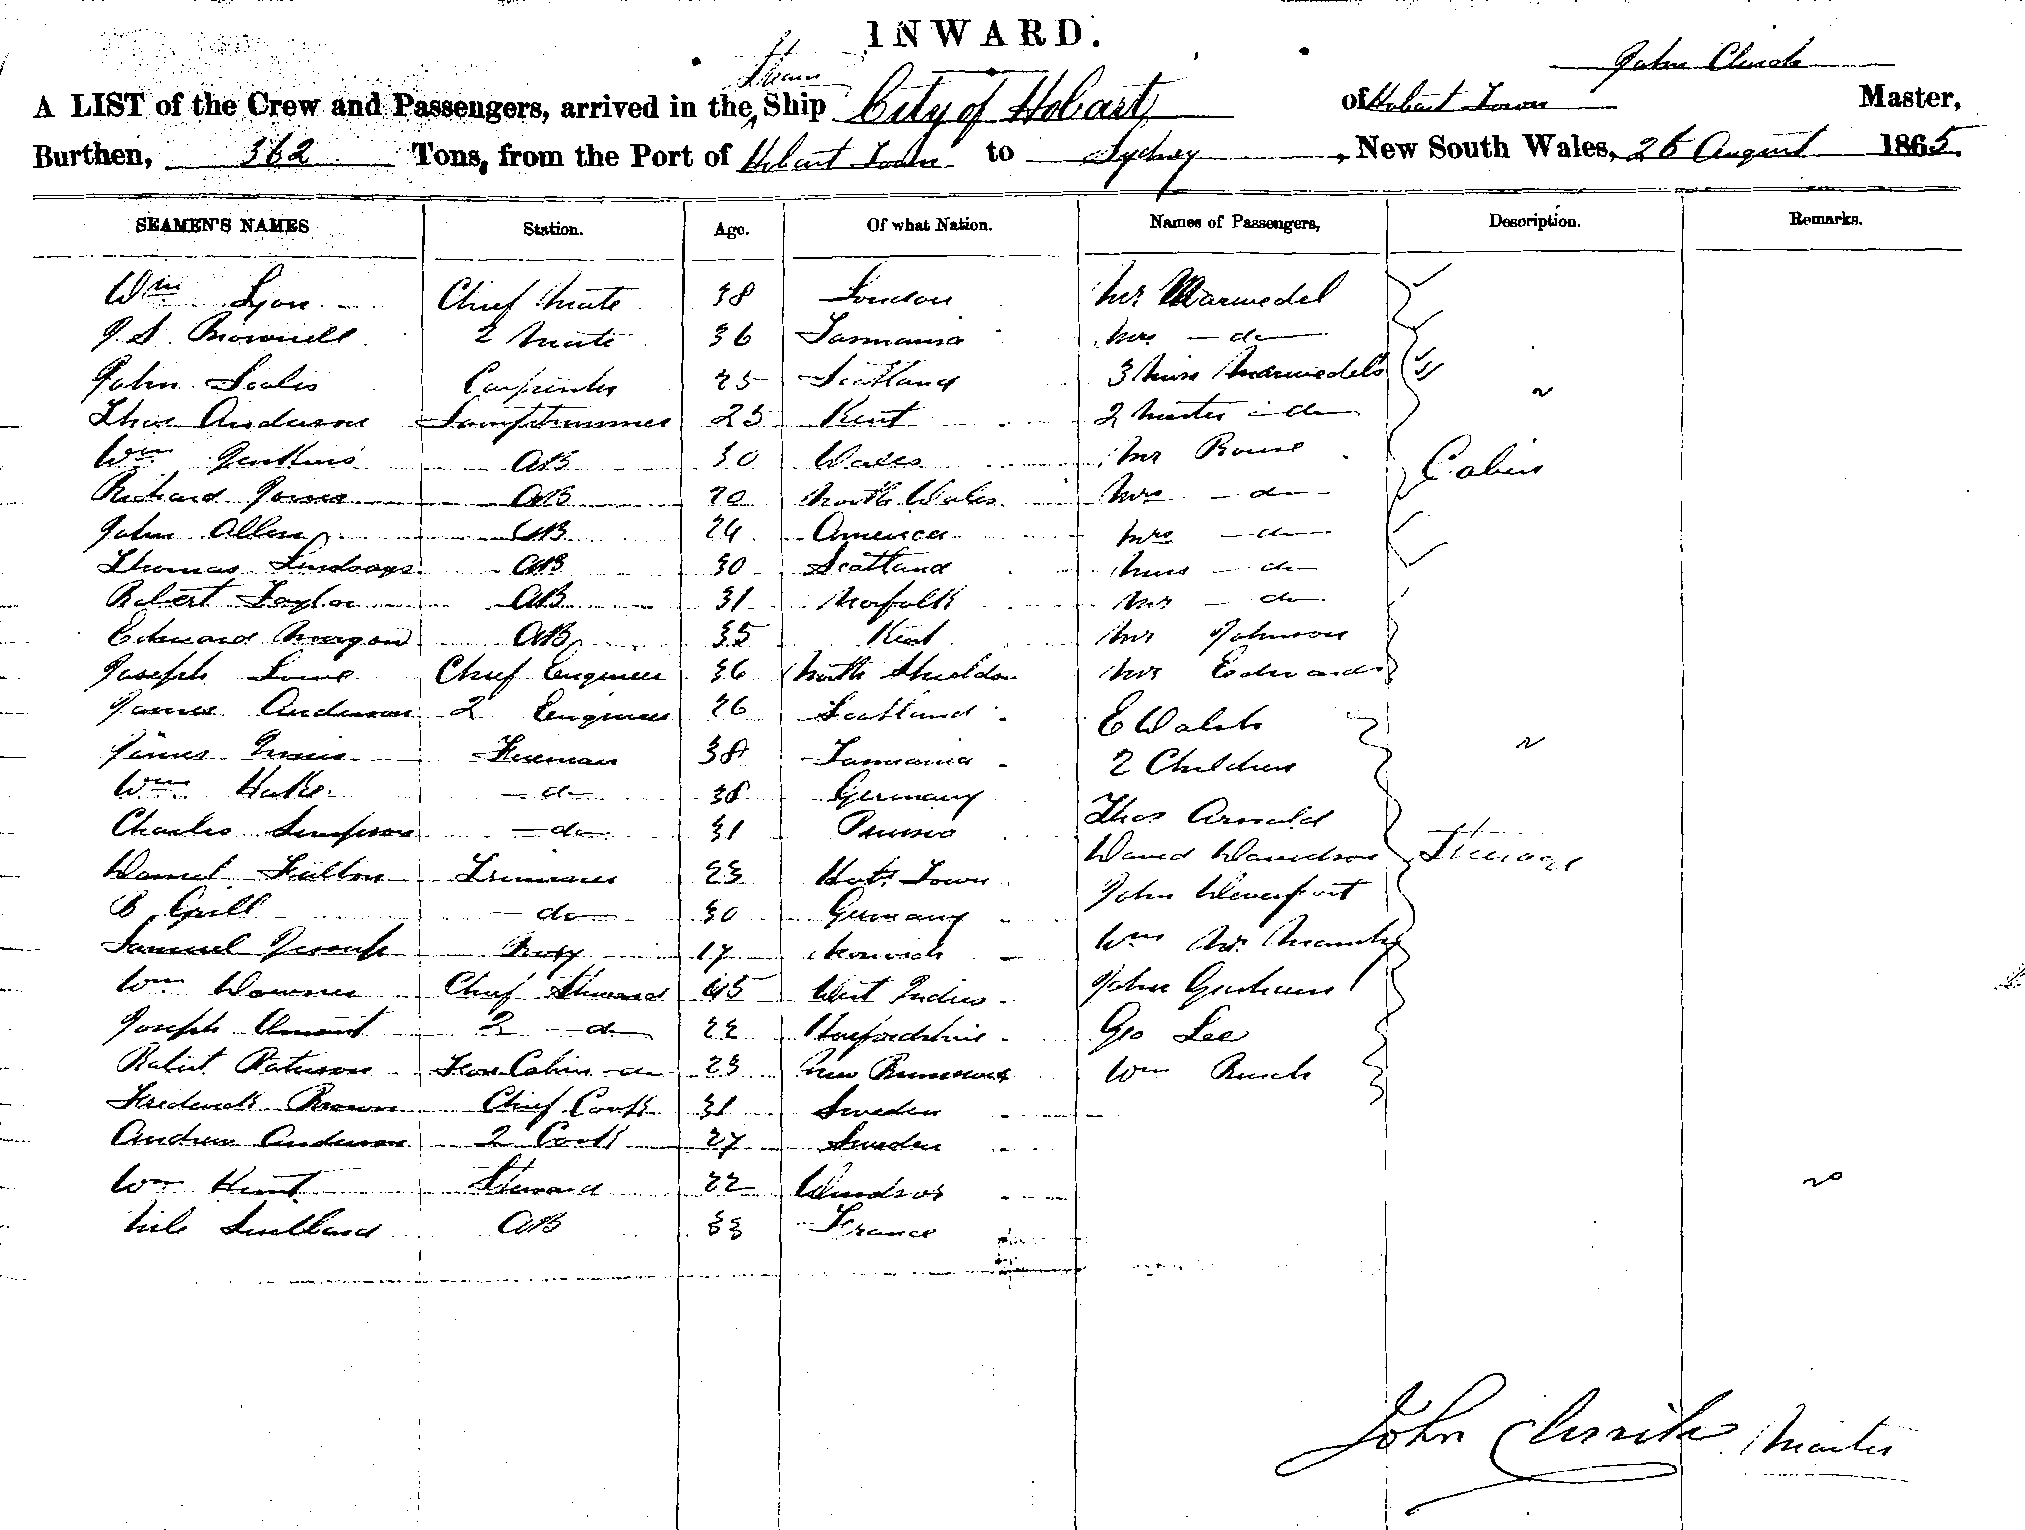 INWARD.
John Clinch
A LIST of the Crew and Passengers, arrived in the Steam Ship City of Hobart of Hobart Town Master,
Burthen, 362 Tons, from the Port of Hobart Town to Sydney, New South Wales, 26 August 1865.
SEAMEN'S NAMES Station. Age. Of what Nation. Names of Passengers, Description. Remarks.
Wm Lyon Chief Mate 38 London Mr Marwedel
J.S. Brownell 2 Mate 36 Tasmania Mrs do
John Scales Carpenter 25 Scotland 3 Miss Marwedels
Thos Anderson Lamptrimmer 25 Kent 2 Master do
Wm Jenkins AB 30 Wales Mr Rouse Cabin
Richard Jones AB 20 North Wales Mrs do
John Allen AB 24 America Mrs do
Thomas Lindsays AB 30 Scotland Miss do
Robert Taylor AB 31 Norfolk Mr do
Edward Morgan AB 35 Kent Mr Johnson
Joseph Lowe Chief Engineer 36 North Shields Mr Edwards
James Anderson 2 Engineer 26 Scotland E Walsh
James Fireman 38 Tasmania 2 Children
Wm Hake do 38 Germany Thos Arnold
Charles Simpson do 31 Prussia David Davidson Steerage
Daniel Fulton Trimmer 23 Hobt Town John Devenport
B Grill do 30 Germany Wm
Samuel Boy 17 Norwich
Wm Downer Chief Steward 45 West Indies John Graham
Joseph 2 do 22 Herfordshire Geo Lee
Robert Paterson Fore Cabin do 23 New Brunswick Wm Busch
Frederick Brown Chief Cook 31 Sweden
Andrew Anderson 2 Cook 27 Sweden
Wm Hunt Steward 22 Windsor
AB 33 France
John Clinch Master